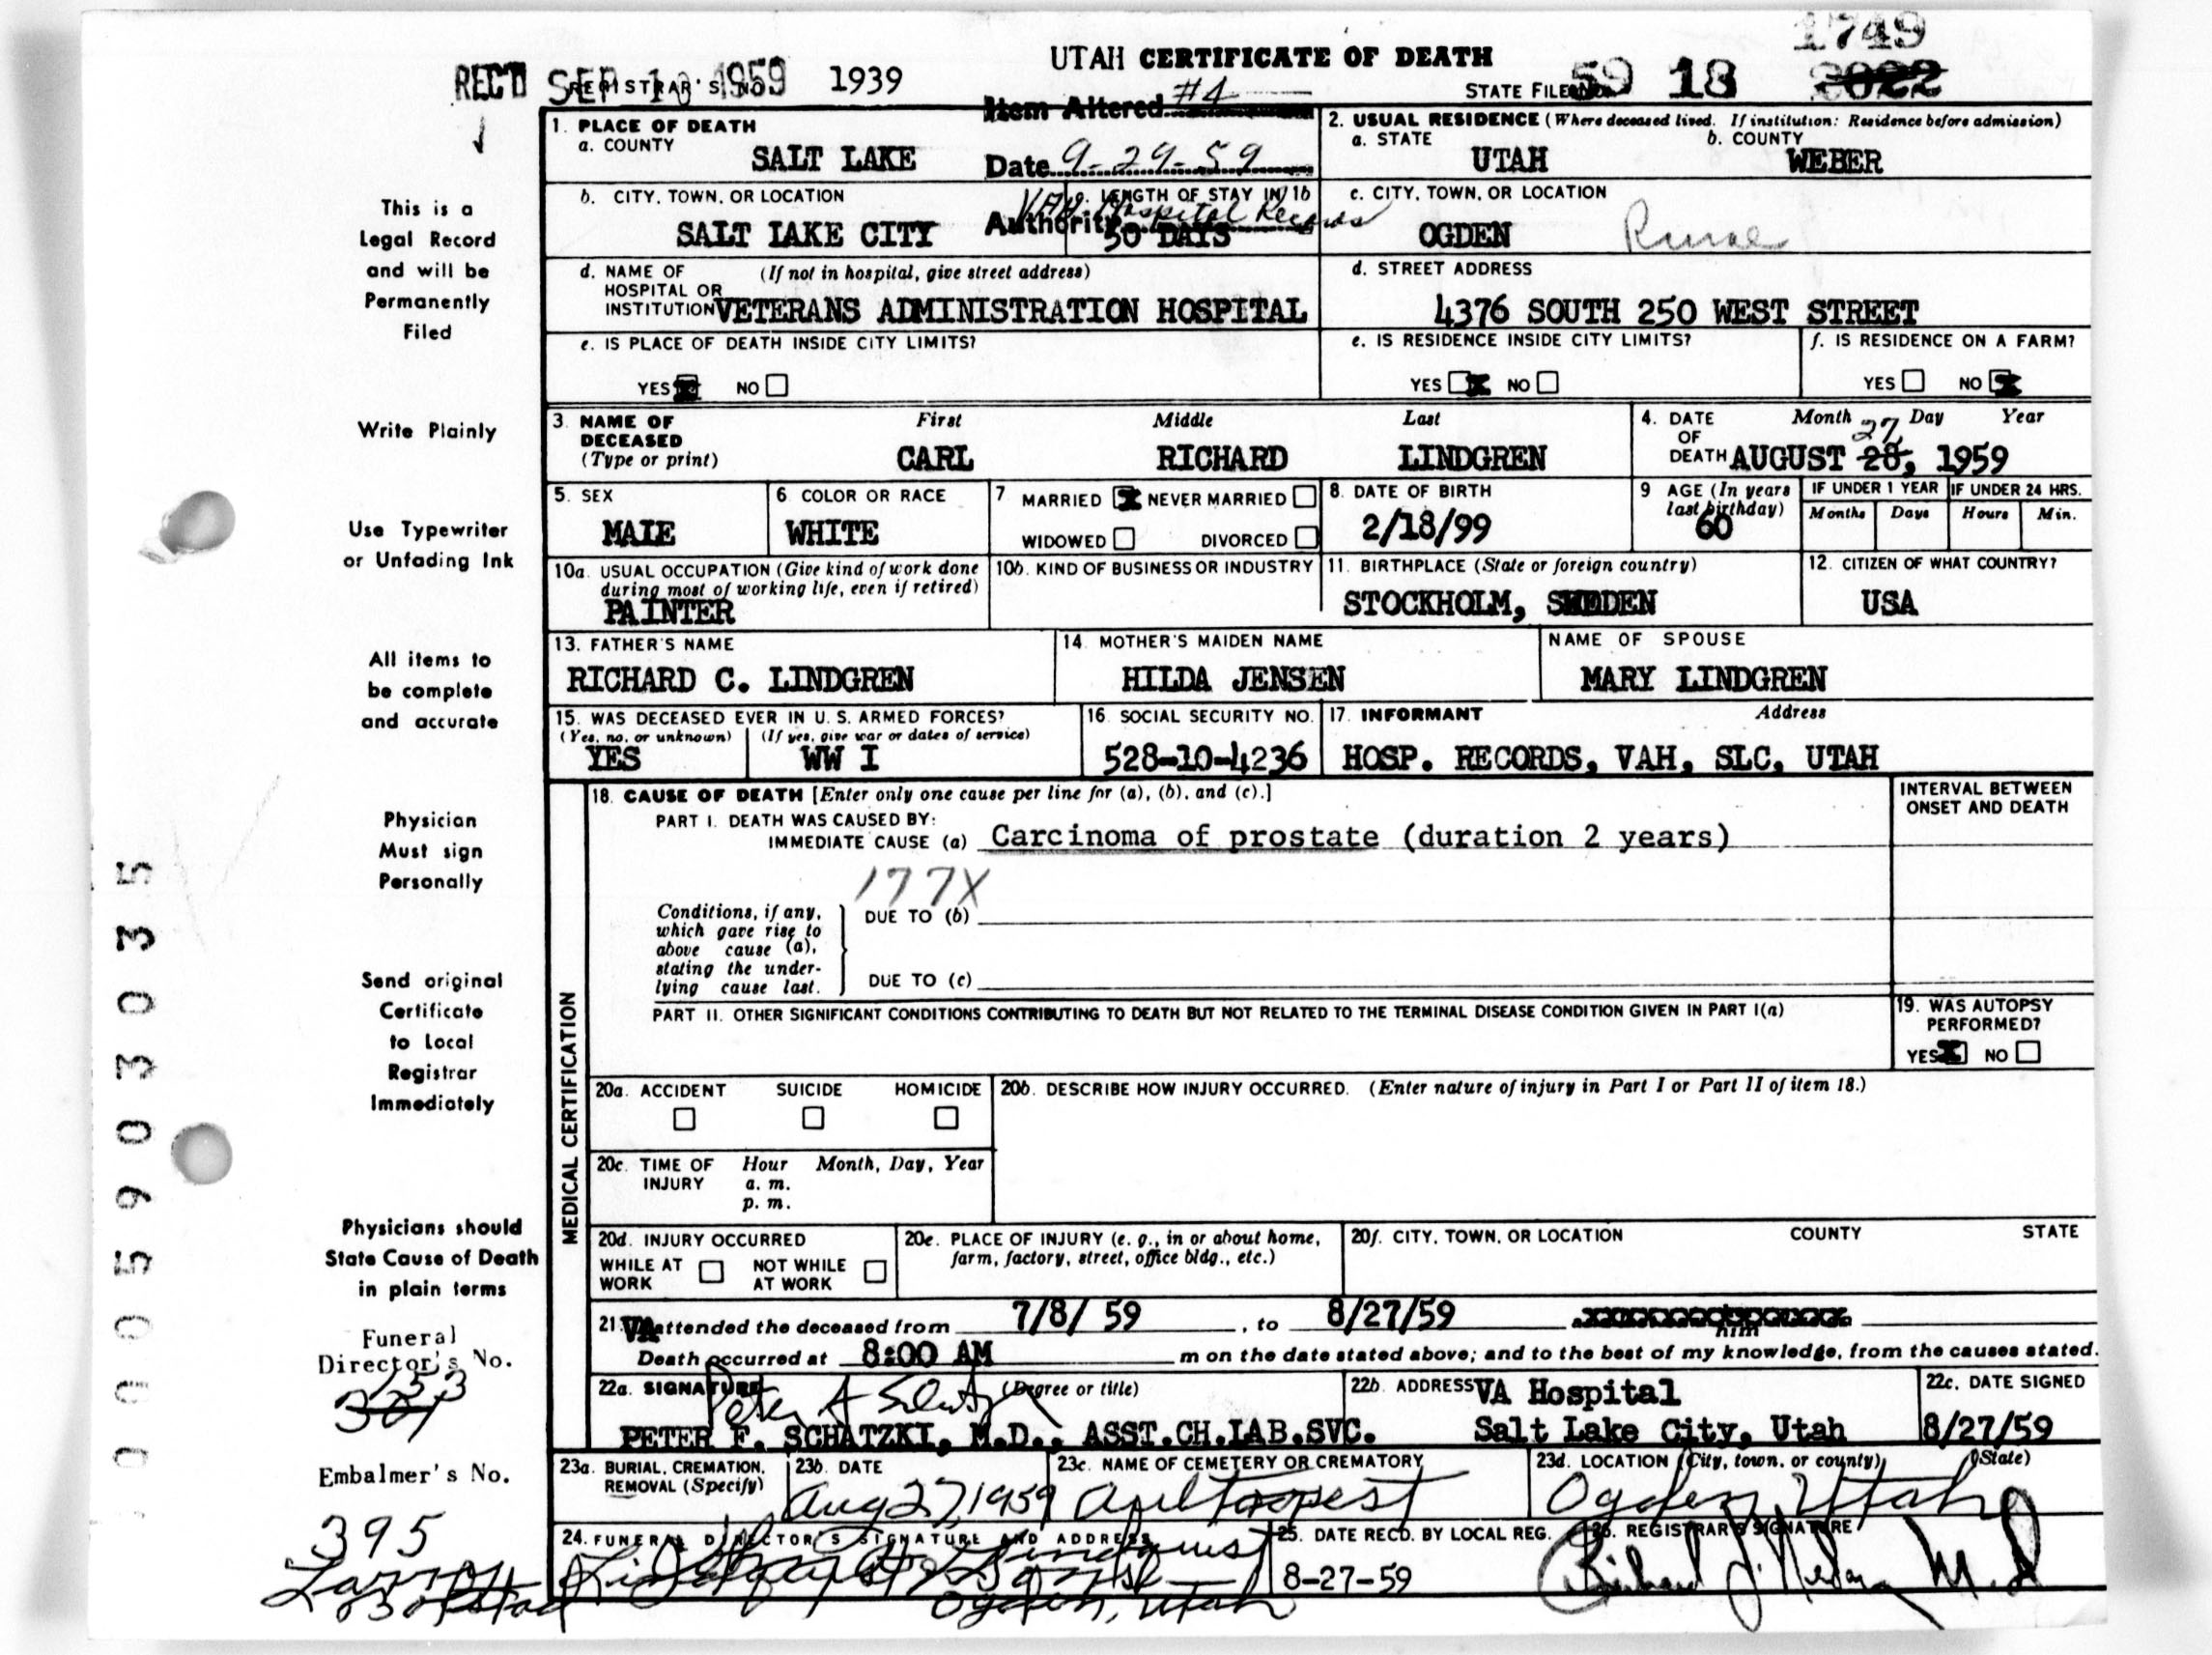 1749
UTAH CERTIFICATE OF DEATH
REC'D SEP 1 1959 REGISTRAR'S 1939
STATE FILE 59 18 2022
Item Altered #4
Date 9-29-59
Authority Hospital Records
1. PLACE OF DEATH
a. COUNTY
SALT LAKE
2. USUAL RESIDENCE (Where deceased lived. If institution: Residence before admission)
a. STATE b. COUNTY
UTAH WEBER
b. CITY, TOWN, OR LOCATION
SALT LAKE CITY
LENGTH OF STAY IN 1b
50 DAYS
c. CITY, TOWN, OR LOCATION
OGDEN Rural
d. NAME OF (If not in hospital, give street address)
HOSPITAL OR
INSTITUTION VETERANS ADMINISTRATION HOSPITAL
d. STREET ADDRESS
4376 SOUTH 250 WEST STREET
e. IS PLACE OF DEATH INSIDE CITY LIMITS?
YES NO
e. IS RESIDENCE INSIDE CITY LIMITS?
YES NO
f. IS RESIDENCE ON A FARM?
YES NO
3. NAME OF First Middle Last
DECEASED
(Type or print) CARL RICHARD LINDGREN
4. DATE Month Day Year
OF 27
DEATH AUGUST 28, 1959
5. SEX
MALE
6. COLOR OR RACE
WHITE
7. MARRIED NEVER MARRIED
WIDOWED DIVORCED
8. DATE OF BIRTH
2/18/99
9. AGE (In years
last birthday)
60
IF UNDER 1 YEAR IF UNDER 24 HRS.
Months Days Hours Min.
10a. USUAL OCCUPATION (Give kind of work done
during most of working life, even if retired)
PAINTER
10b. KIND OF BUSINESS OR INDUSTRY
11. BIRTHPLACE (State or foreign country)
STOCKHOLM, SWEDEN
12. CITIZEN OF WHAT COUNTRY?
USA
13. FATHER'S NAME
RICHARD C. LINDGREN
14. MOTHER'S MAIDEN NAME
HILDA JENSEN
NAME OF SPOUSE
MARY LINDGREN
15. WAS DECEASED EVER IN U. S. ARMED FORCES?
(Yes, no, or unknown) (If yes, give war or dates of service)
YES WW I
16. SOCIAL SECURITY NO.
528-10-4236
17. INFORMANT Address
HOSP. RECORDS, VAH, SLC, UTAH
MEDICAL CERTIFICATION
18. CAUSE OF DEATH [Enter only one cause per line for (a), (b), and (c).]
PART I. DEATH WAS CAUSED BY:
IMMEDIATE CAUSE (a) Carcinoma of prostate (duration 2 years)
INTERVAL BETWEEN
ONSET AND DEATH
177X
Conditions, if any,
which gave rise to
above cause (a),
stating the under-
lying cause last.
DUE TO (b)
DUE TO (c)
PART II. OTHER SIGNIFICANT CONDITIONS CONTRIBUTING TO DEATH BUT NOT RELATED TO THE TERMINAL DISEASE CONDITION GIVEN IN PART I(a)
19. WAS AUTOPSY
PERFORMED?
YES NO
20a. ACCIDENT SUICIDE HOMICIDE
20b. DESCRIBE HOW INJURY OCCURRED. (Enter nature of injury in Part I or Part II of item 18.)
20c. TIME OF Hour Month, Day, Year
INJURY a. m.
p. m.
20d. INJURY OCCURRED
WHILE AT NOT WHILE
WORK AT WORK
20e. PLACE OF INJURY (e. g., in or about home,
farm, factory, street, office bldg., etc.)
20f. CITY, TOWN, OR LOCATION COUNTY STATE
21. VA attended the deceased from 7/8/ 59, to 8/27/59 him
Death occurred at 8:00 AM m on the date stated above; and to the best of my knowledge, from the causes stated.
22a. SIGNATURE (Degree or title)
PETER F. SCHATZKI, M.D., ASST.CH.LAB.SVC.
22b. ADDRESS VA Hospital
Salt Lake City, Utah
22c. DATE SIGNED
8/27/59
23a. BURIAL, CREMATION,
REMOVAL (Specify)
23b. DATE
Aug 27, 1959
23c. NAME OF CEMETERY OR CREMATORY
Aultorest
23d. LOCATION (City, town, or county) (State)
Ogden, Utah
24. FUNERAL DIRECTOR'S SIGNATURE AND ADDRESS
Lindquist
Ogden, Utah
25. DATE RECD. BY LOCAL REG.
8-27-59
26. REGISTRAR'S SIGNATURE
M.D.
This is a
Legal Record
and will be
Permanently
Filed
Write Plainly
Use Typewriter
or Unfading Ink
All items to
be complete
and accurate
Physician
Must sign
Personally
Send original
Certificate
to Local
Registrar
Immediately
Physicians should
State Cause of Death
in plain terms
Funeral
Director's No.
153
Embalmer's No.
395
0005903035